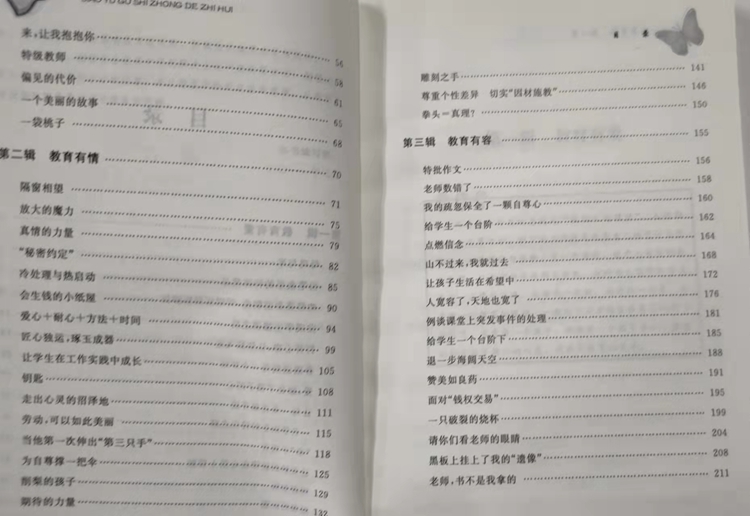 GU SHI ZHONG DE ZHI HUI
来,让我抱抱你 54
特级教师 58
偏见的代价 61
一个美丽的故事 65
一袋桃子 68
第二辑 教育有情 70
隔窗相望 71
放大的魔力 75
真情的力量 79
“秘密约定” 82
冷处理与热启动 85
会生钱的小纸屋 90
爱心＋耐心＋方法＋时间 94
匠心独运,琢玉成器 99
让学生在工作实践中成长 105
钥匙 108
走出心灵的沼泽地 111
劳动,可以如此美丽 115
当他第一次伸出“第三只手” 118
为自尊撑一把伞 125
削梨的孩子 129
期待的力量 132
目 录
雕刻之手 141
尊重个性差异 切实“因材施教” 146
拳头＝真理？ 150
第三辑 教育有容 155
特批作文 156
老师数错了 158
我的疏忽保全了一颗自尊心 160
给学生一个台阶 162
点燃信念 164
山不过来,我就过去 168
让孩子生活在希望中 172
人宽容了,天地也宽了 176
例谈课堂上突发事件的处理 181
给学生一个台阶下 185
退一步海阔天空 188
赞美如良药 191
面对“钱权交易” 195
一只破裂的烧杯 199
请你们看老师的眼睛 204
黑板上挂上了我的“遗像” 208
老师,书不是我拿的 211